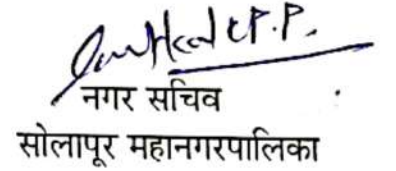 नगर सचिव
सोलापूर महानगरपालिका